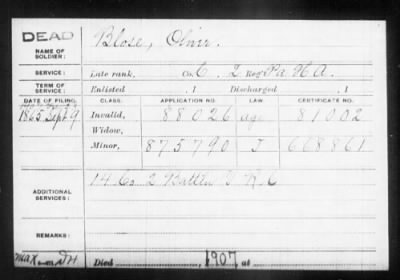 DEAD
NAME OF SOLDIER: Blose, Oliver.
SERVICE: Late rank, Co. C, 2 Reg't Pa H.A.
TERM OF SERVICE: Enlisted , 1 Discharged , 1
DATE OF FILING. CLASS. APPLICATION NO. LAW. CERTIFICATE NO.
1865 Sept 9 Invalid, 88026 81002
Widow,
Minor, 875790 J 668861
ADDITIONAL SERVICES: 14 Co 2 Battln V R C
REMARKS:
Died 1907, at